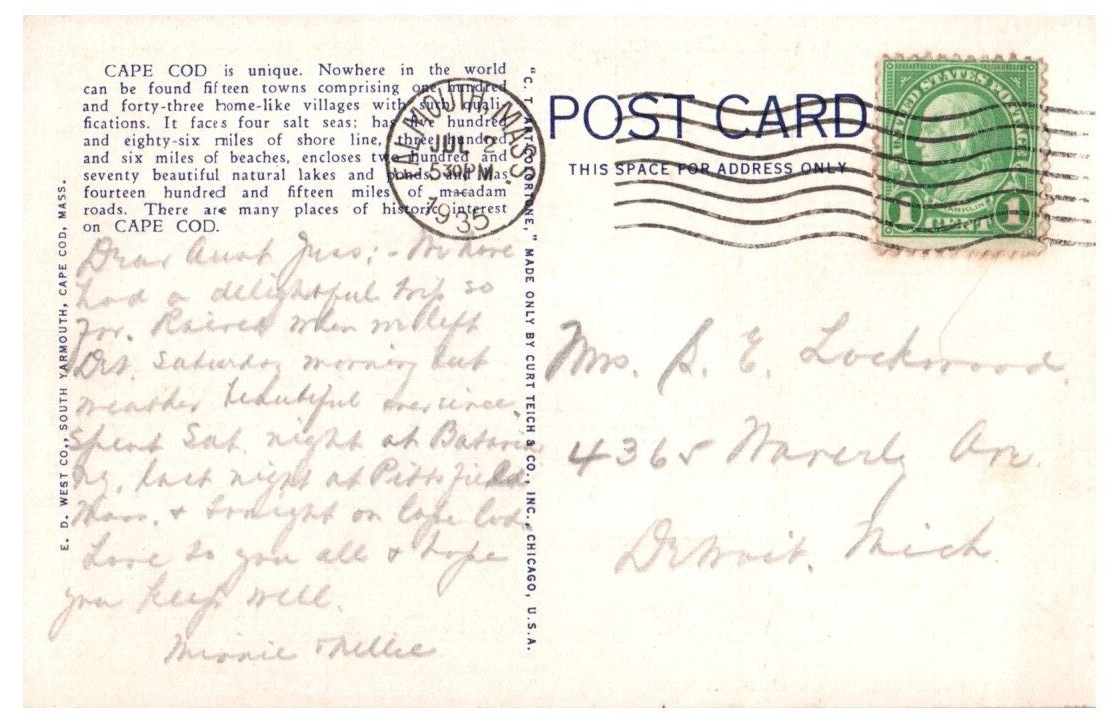 CAPE COD is unique. Nowhere in the world
can be found fifteen towns comprising one hundred
and forty-three home-like villages with such quali-
fications. It faces four salt seas: has five hundred
and eighty-six miles of shore line, three hundred
and six miles of beaches, encloses two hundred and
seventy beautiful natural lakes and ponds, and has
fourteen hundred and fifteen miles of macadam
roads. There are many places of historic interest
on CAPE COD.
Dear Aunt Juss; - We have
had a delightful trip so
far. Rained when we left
Det. Saturday morning but
weather beautiful ever since.
Spent Sat. night at Batavia
NY. last night at Pittsfield
Mass. & tonight on Cape Cod.
Love to you all & hope
you keep well.
Minnie & Nellie
E. D. WEST CO., SOUTH YARMOUTH, CAPE COD, MASS.
"C. T. ART-COLORTONE," MADE ONLY BY CURT TEICH & CO., INC., CHICAGO, U.S.A.
FALMOUTH, MASS.
JUL 2
530PM
1935
POST CARD
THIS SPACE FOR ADDRESS ONLY
UNITED STATES POSTAGE
FRANKLIN
1 CENT 1
Mrs. S. E. Lockwood.
4365 Waverly Ave.
Detroit, Mich